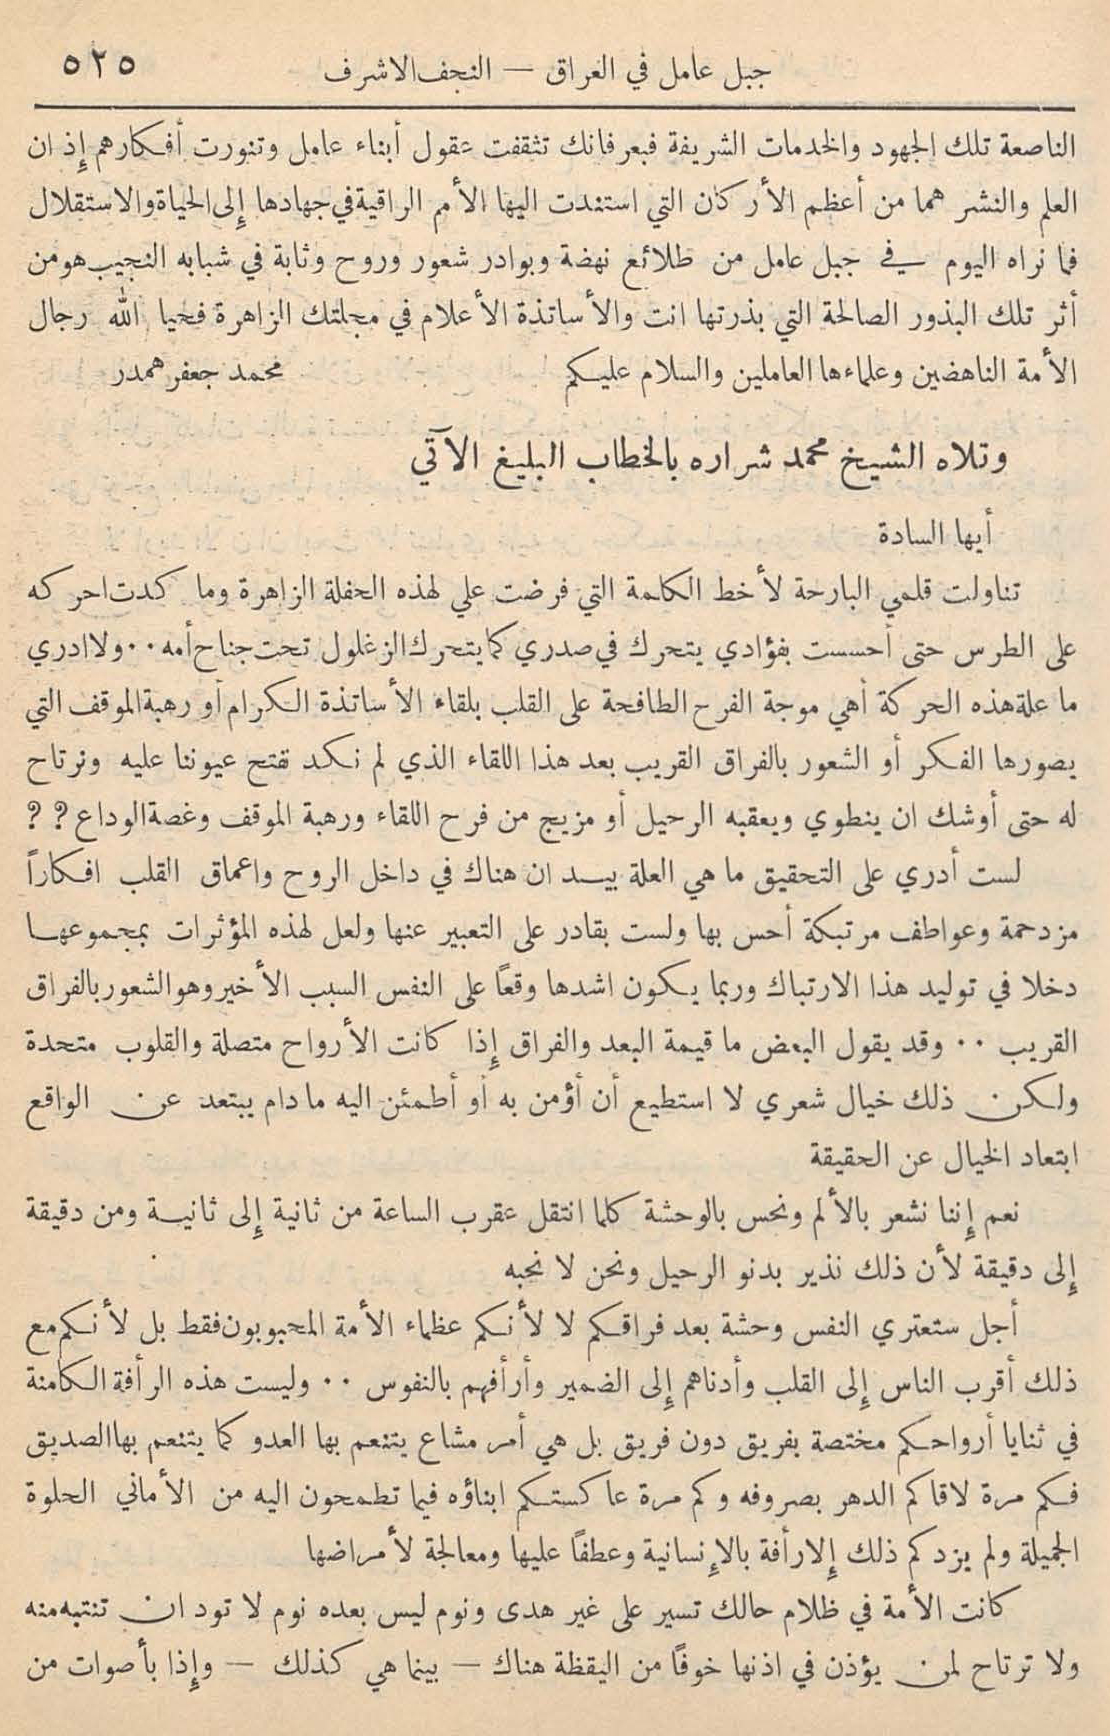 جبل عامل في العراق — النجف الاشرف ٥٢٥
الناصعة تلك الجهود والخدمات الشريفة فبعرفانك تثقفت عقول أبناء عامل وتنورت أفكارهم إِذ ان
العلم والنشر هما من أعظم الأركان التي استندت اليها الأمم الراقية في جهادها إِلى الحياة والاستقلال
فما نراه اليوم في جبل عامل من طلائع نهضة وبوادر شعور وروح وثابة في شبابه النجيب هو من
أثر تلك البذور الصالحة التي بذرتها انت والأساتذة الأعلام في مجلتك الزاهرة فحيا الله رجال
الأمة الناهضين وعلماءها العاملين والسلام عليكم محمد جعفر همدر
وتلاه الشيخ محمد شراره بالخطاب البليغ الآتي
أيها السادة
تناولت قلمي البارحة لأخط الكلمة التي فرضت علي لهذه الحفلة الزاهرة وما كدت احركه
على الطرس حتى أحسست بفؤادي يتحرك في صدري كما يتحرك الزغلول تحت جناح أمه٠٠ ولا ادري
ما علة هذه الحركة أهي موجة الفرح الطافحة على القلب بلقاء الأساتذة الكرام أو رهبة الموقف التي
يصورها الفكر أو الشعور بالفراق القريب بعد هذا اللقاء الذي لم نكد نفتح عيوننا عليه ونرتاح
له حتى أوشك ان ينطوي ويعقبه الرحيل أو مزيج من فرح اللقاء ورهبة الموقف وغصة الوداع ؟ ؟
لست أدري على التحقيق ما هي العلة بيد ان هناك في داخل الروح واعماق القلب افكاراً
مزدحمة وعواطف مرتبكة أحس بها ولست بقادر على التعبير عنها ولعل لهذه المؤثرات بمجموعها
دخلا في توليد هذا الارتباك وربما يكون اشدها وقعاً على النفس السبب الأخير وهو الشعور بالفراق
القريب ٠٠ وقد يقول البعض ما قيمة البعد والفراق إِذا كانت الأرواح متصلة والقلوب متحدة
ولكن ذلك خيال شعري لا استطيع أن أؤمن به أو أطمئن اليه ما دام يبتعد عن الواقع
ابتعاد الخيال عن الحقيقة
نعم إِننا نشعر بالألم ونحس بالوحشة كلما انتقل عقرب الساعة من ثانية إِلى ثانية ومن دقيقة
إِلى دقيقة لأن ذلك نذير بدنو الرحيل ونحن لا نحبه
أجل ستعتري النفس وحشة بعد فراقكم لا لأنكم عظماء الأمة المحبوبون فقط بل لأنكم مع
ذلك أقرب الناس إِلى القلب وأدناهم إِلى الضمير وأرأفهم بالنفوس ٠٠ وليست هذه الرأفة الكامنة
في ثنايا أرواحكم مختصة بفريق دون فريق بل هي أمر مشاع يتنعم بها العدو كما يتنعم بها الصديق
فكم مرة لاقاكم الدهر بصروفه وكم مرة عاكستكم ابناؤه فيما تطمحون اليه من الأماني الحلوة
الجميلة ولم يزدكم ذلك إِلا رأفة بالإِنسانية وعطفاً عليها ومعالجة لأمراضها
كانت الأمة في ظلام حالك تسير على غير هدى ونوم ليس بعده نوم لا تود ان تنتبه منه
ولا ترتاح لمن يؤذن في اذنها خوفاً من اليقظة هناك — بينما هي كذلك — وإِذا بأصوات من